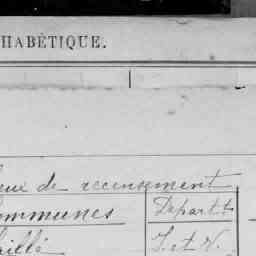 HABÉTIQUE.
lieux de recensement
Communes
Departt
illé
I. et V.